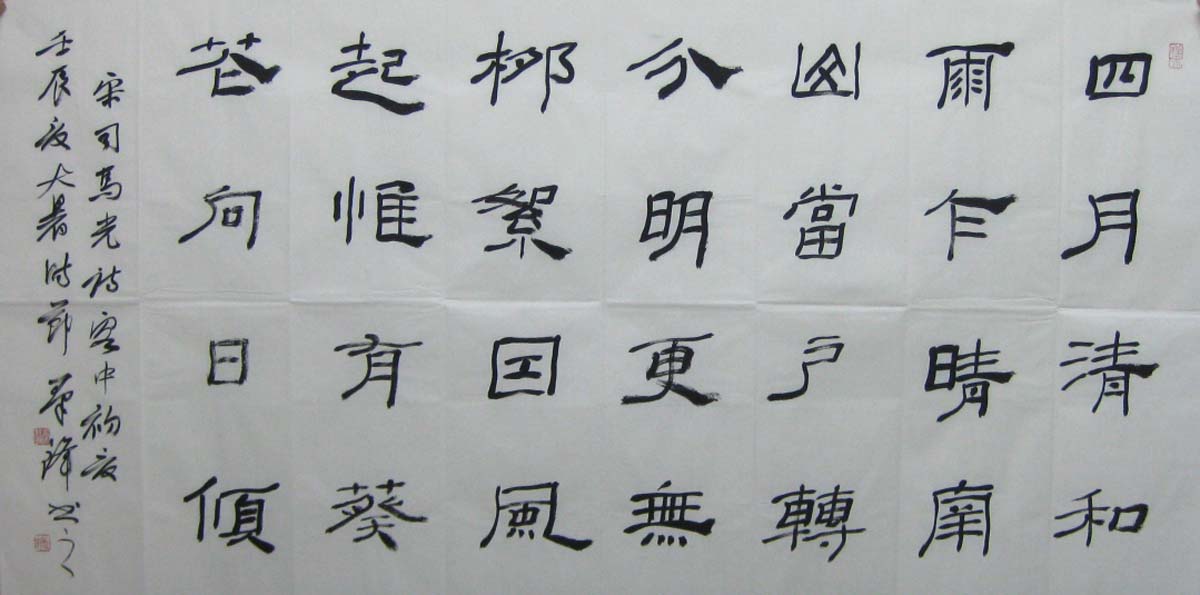 四月清和
雨乍晴南
山當户轉
分明更無
柳絮因風
起惟有葵
花向日傾
宋司馬光詩客中初夏
壬辰夏大暑時節